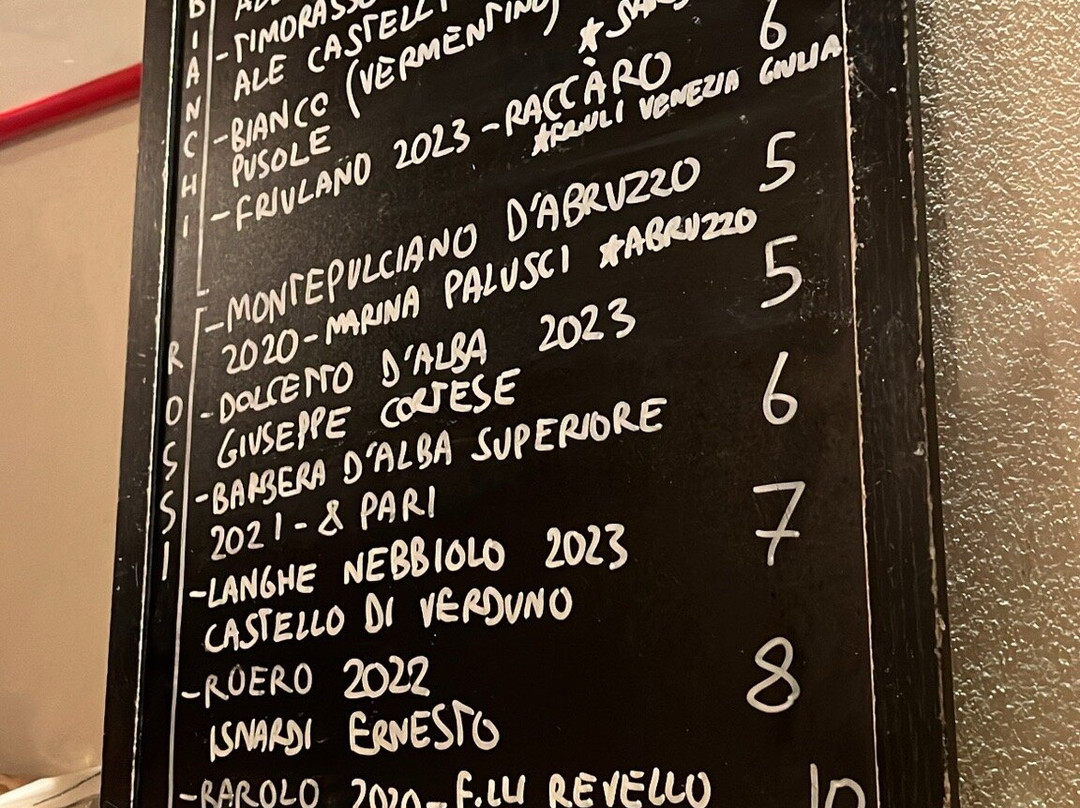 BIANCHI
-TIMORASSO
ALE CASTELL
-BIANCO (VERMENTINO)
PUSOLE
6
-FRIULANO 2023-RACCÀRO
*FRIULI VENEZIA GIULIA
ROSSI
-MONTEPULCIANO D'ABRUZZO 5
2020-MARINA PALUSCI *ABRUZZO
-DOLCETTO D'ALBA 2023 5
GIUSEPPE CORTESE
-BARBERA D'ALBA SUPERIORE 6
2021-8 PARI
-LANGHE NEBBIOLO 2023 7
CASTELLO DI VERDUNO
-ROERO 2022 8
ISNARDI ERNESTO
-BAROLO 2020-F.LLI REVELLO 10